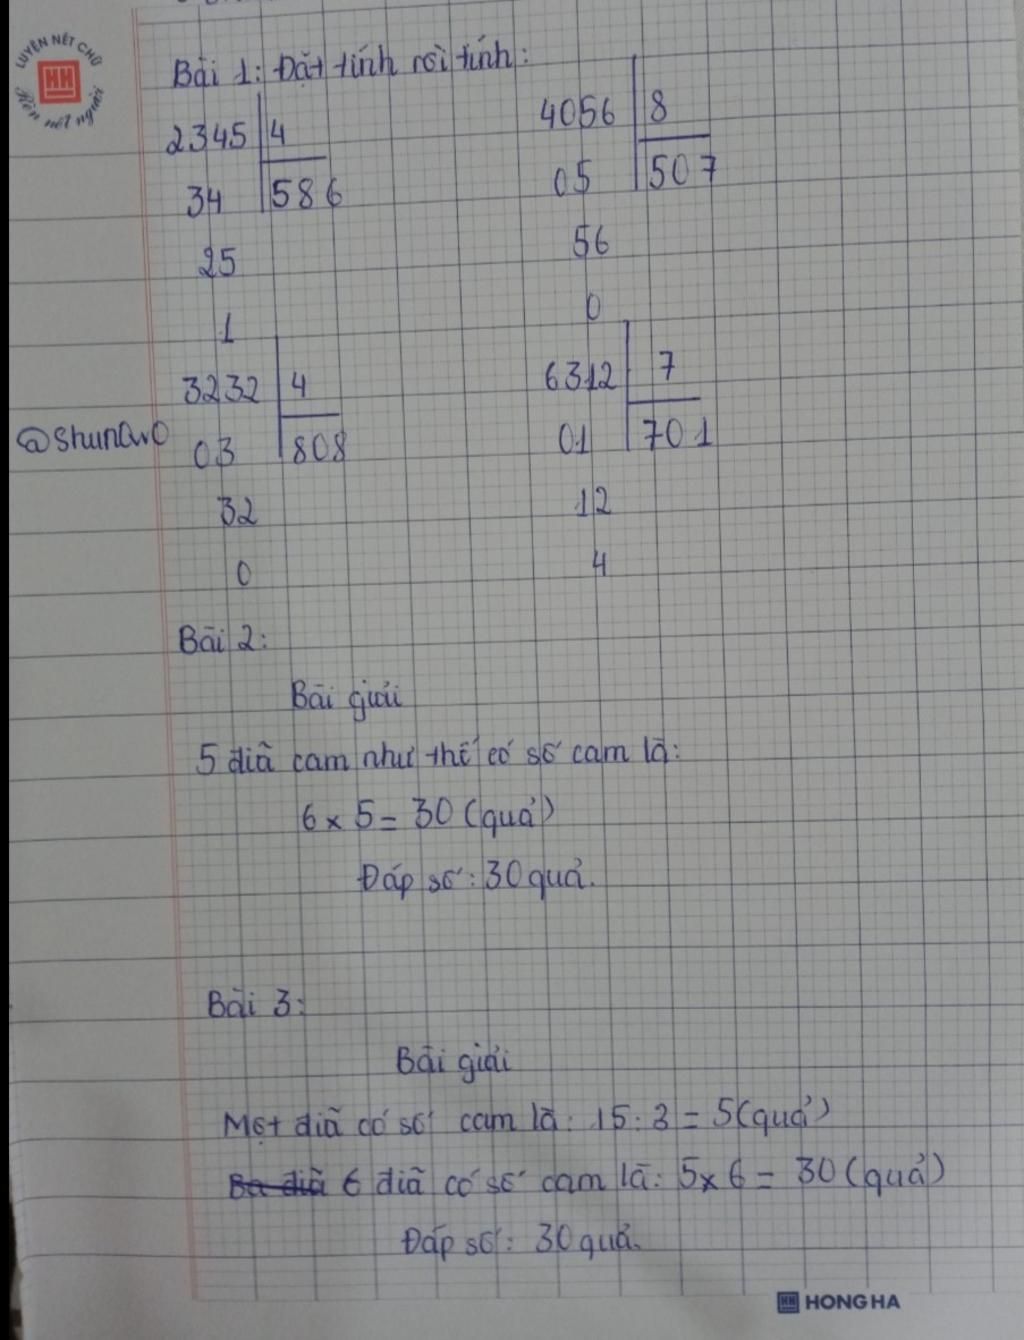 LUYỆN NÉT CHỮ
HH
Rèn nết người
Bài 1: Đặt tính rồi tính:
2345 4 4056 8
34 586 05 507
25 56
1 0
3232 4 6312 7
@shunQwO 03 808 01 701
32 12
0 4
Bài 2:
Bài giải
5 đĩa cam như thế có số cam là:
6 x 5 = 30 (quả)
Đáp số: 30 quả.
Bài 3:
Bài giải
Một đĩa có số cam là: 15 : 3 = 5 (quả)
Ba đĩa 6 đĩa có số cam là: 5 x 6 = 30 (quả)
Đáp số: 30 quả.
HH HONG HA